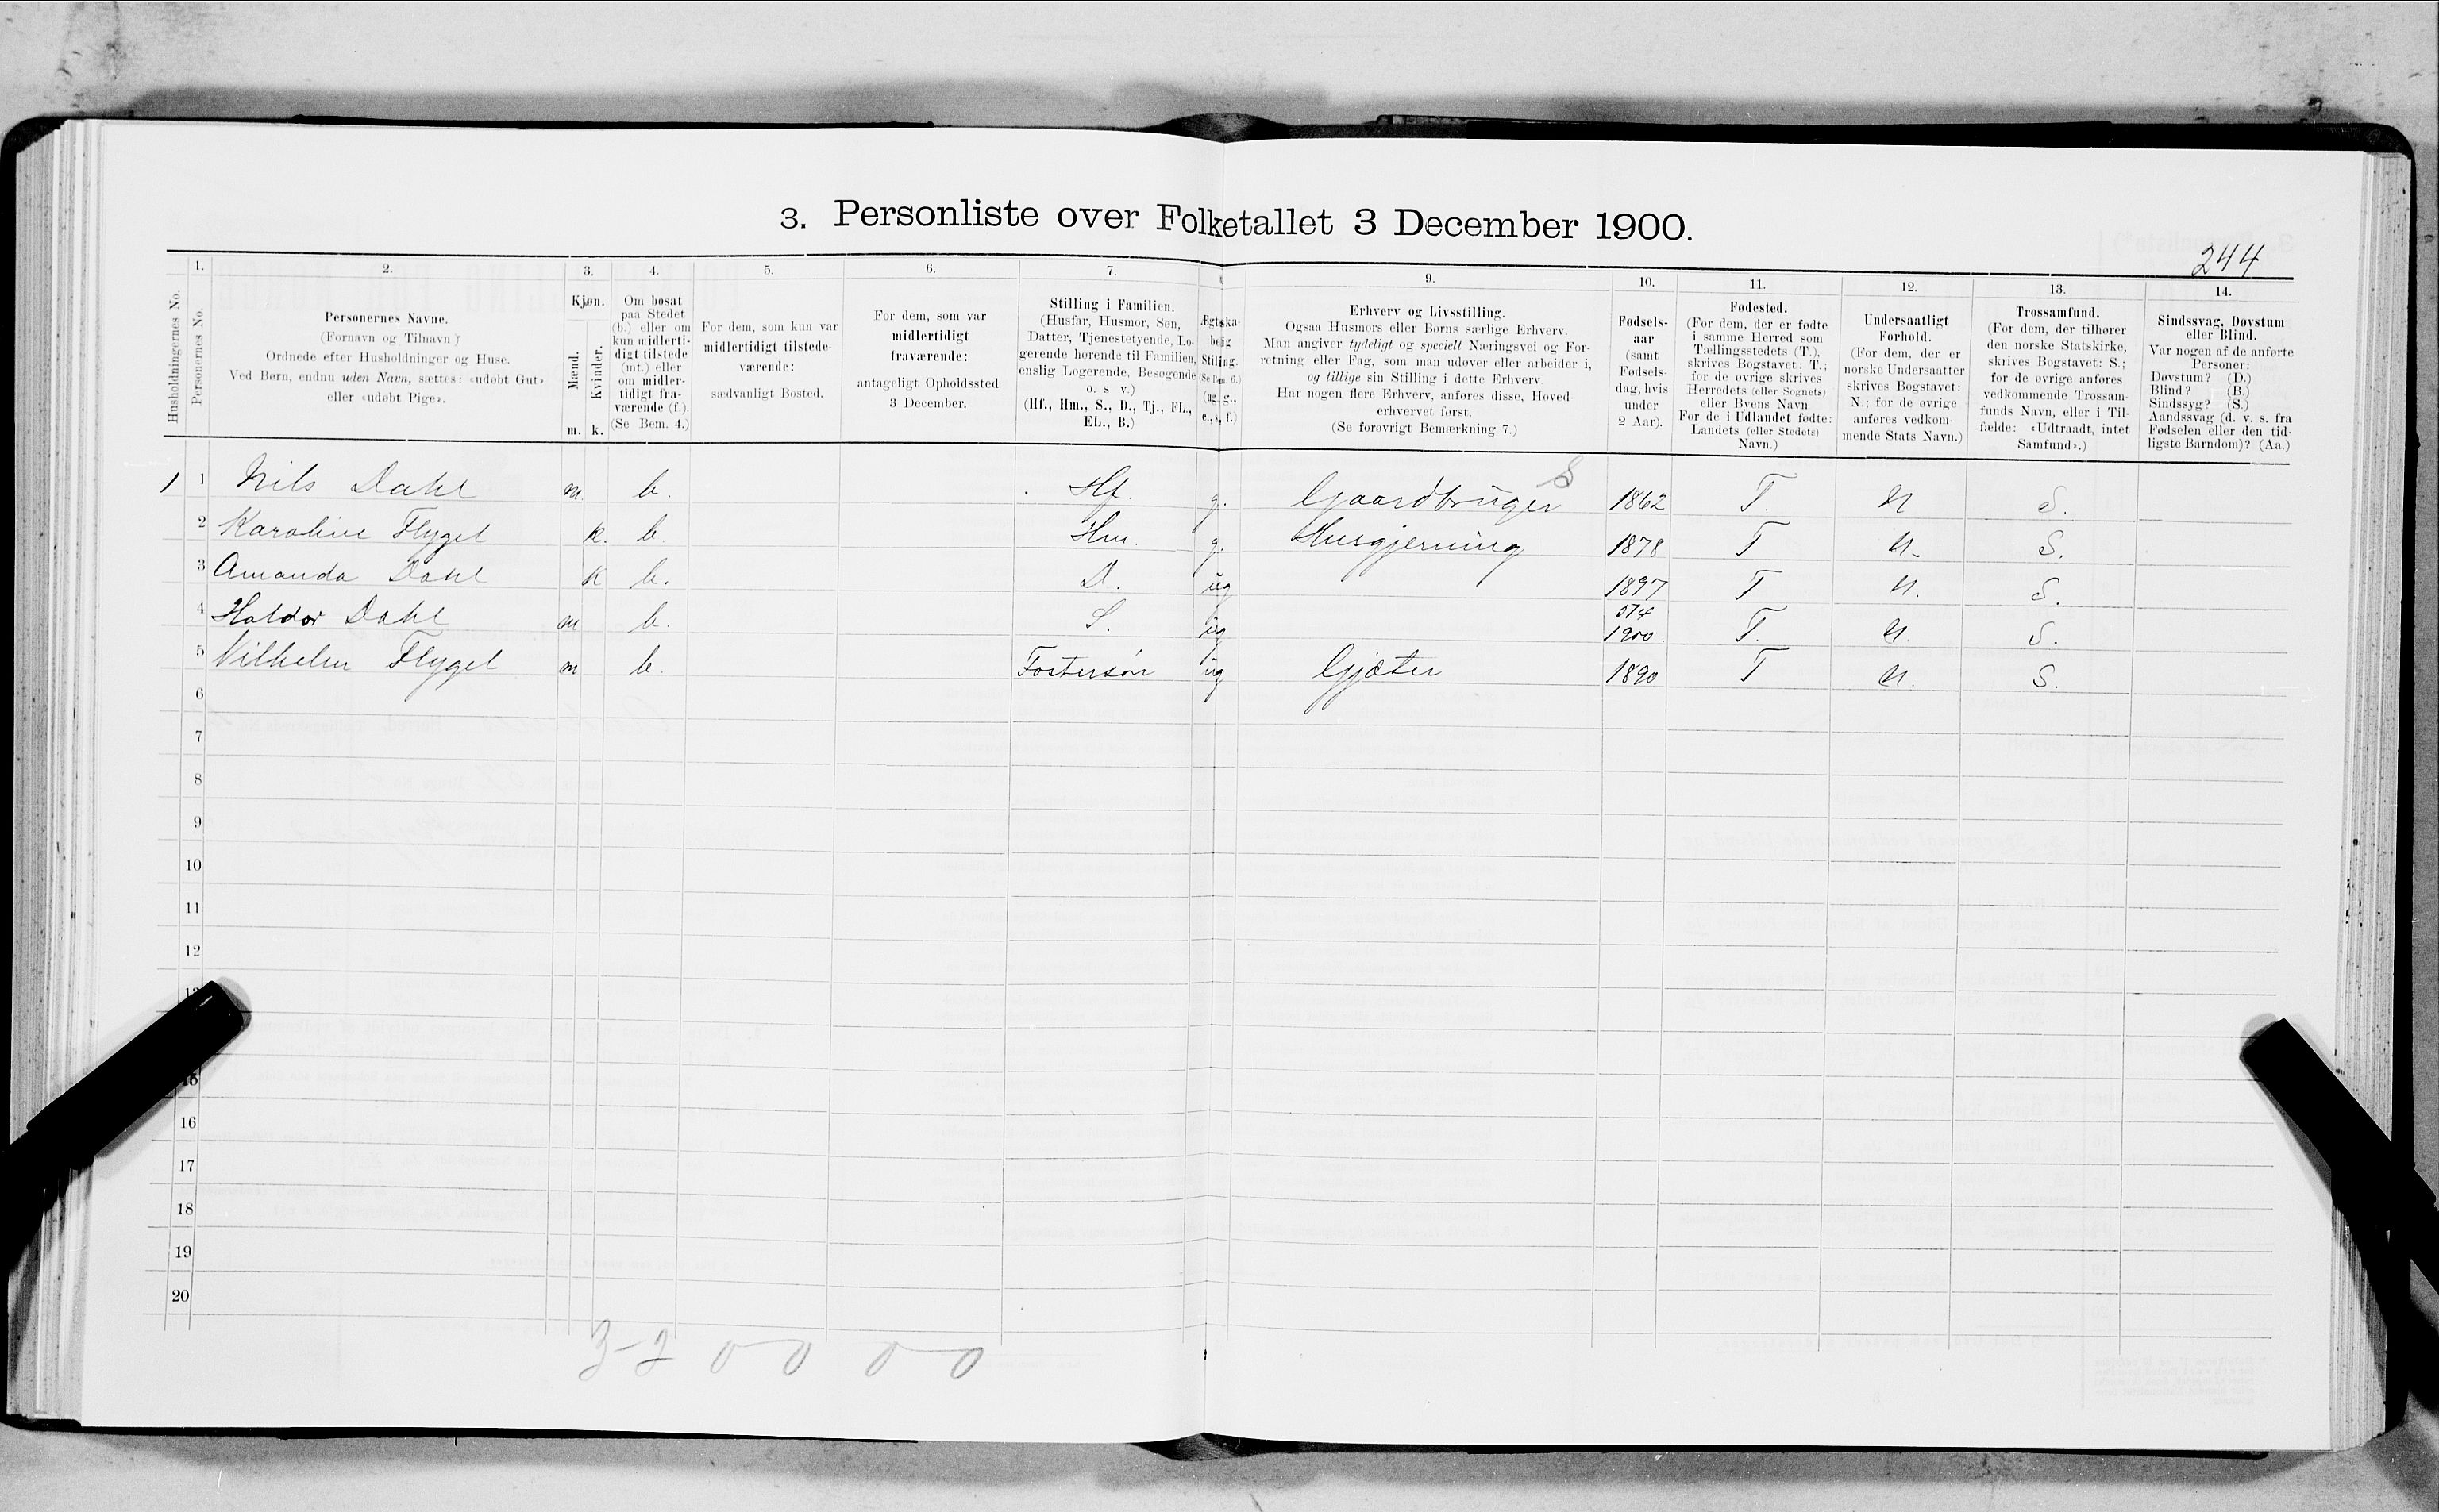 3. Personliste over Folketallet 3 December 1900.
244
1. 2. 3. 4. 5. 6. 7. 9. 10. 11. 12. 13. 14.
Husholdningernes No.
Personernes No.
Personernes Navne.
(Fornavn og Tilnavn)
Ordnede efter Husholdninger og Huse.
Ved Børn, endnu uden Navn, sættes: «udøbt Gut»
eller «udøbt Pige».
Kjøn.
Mænd.
Kvinder.
m. k.
Om bosat
paa Stedet
(b.) eller om
kun midlerti-
digt tilstede
(mt.) eller
om midler-
tidigt fra-
værende (f.).
(Se Bem. 4.)
For dem, som kun var
midlertidigt tilstede-
værende:
sædvanligt Bosted.
For dem, som var
midlertidigt
fraværende:
antageligt Opholdssted
3 December.
Stilling i Familien.
(Husfar, Husmor, Søn,
Datter, Tjenestetyende, Lo-
gerende hørende til Familien,
enslig Logerende, Besøgende
o. s v.)
(Hf., Hm., S., D., Tj., FL.,
EL., B.)
Ægteska-
belig
Stilling.
(Se Bem. 6.)
(ug., g.,
e., s., f.)
Erhverv og Livsstilling.
Ogsaa Husmors eller Børns særlige Erhverv.
Man angiver tydeligt og specielt Næringsvei og For-
retning eller Fag, som man udøver eller arbeider i,
og tillige sin Stilling i dette Erhverv.
Har nogen flere Erhverv, anføres disse, Hoved-
erhvervet først.
(Se forøvrigt Bemærkning 7.)
Fødsels-
aar
(samt
Fødsels-
dag, hvis
under
2 Aar).
Fødested.
(For dem, der er fødte
i samme Herred som
Tællingsstedets (T.),
skrives Bogstavet: T.;
for de øvrige skrives
Herredets (eller Sognets)
eller Byens Navn
For de i Udlandet fødte:
Landets (eller Stedets)
Navn.)
Undersaatligt
Forhold.
(For dem, der er
norske Undersaatter
skrives Bogstavet:
N.; for de øvrige
anføres vedkom-
mende Stats Navn.)
Trossamfund.
(For dem, der tilhører
den norske Statskirke,
skrives Bogstavet: S.;
for de øvrige anføres
vedkommende Trossam-
funds Navn, eller i Til-
fælde: «Udtraadt, intet
Samfund».)
Sindssvag, Døvstum
eller Blind.
Var nogen af de anførte
Personer:
Døvstum? (D.)
Blind? (B.)
Sindssyg? (S.)
Aandssvag (d. v. s. fra
Fødselen eller den tid-
ligste Barndom)? (Aa.)
1 1 Nils Dahl m b. Hf. g. Gaardbruger S 1862 T. N S.
2 Karoline Flygel k. b. Hm. g. Husgjerning 1878 T N. S.
3 Amanda Dahl k b. D. ug 1897 T N. S.
4 Haldor Dahl m b. S. ug 5/4 1900. T. N. S.
5 Vilhelm Flygel m b. Fostersøn ug Gjæter 1890 T N. S.
6
7
8
9
10
11
12
13
15
16
17
18
19
20
3-2 0 0 0 0